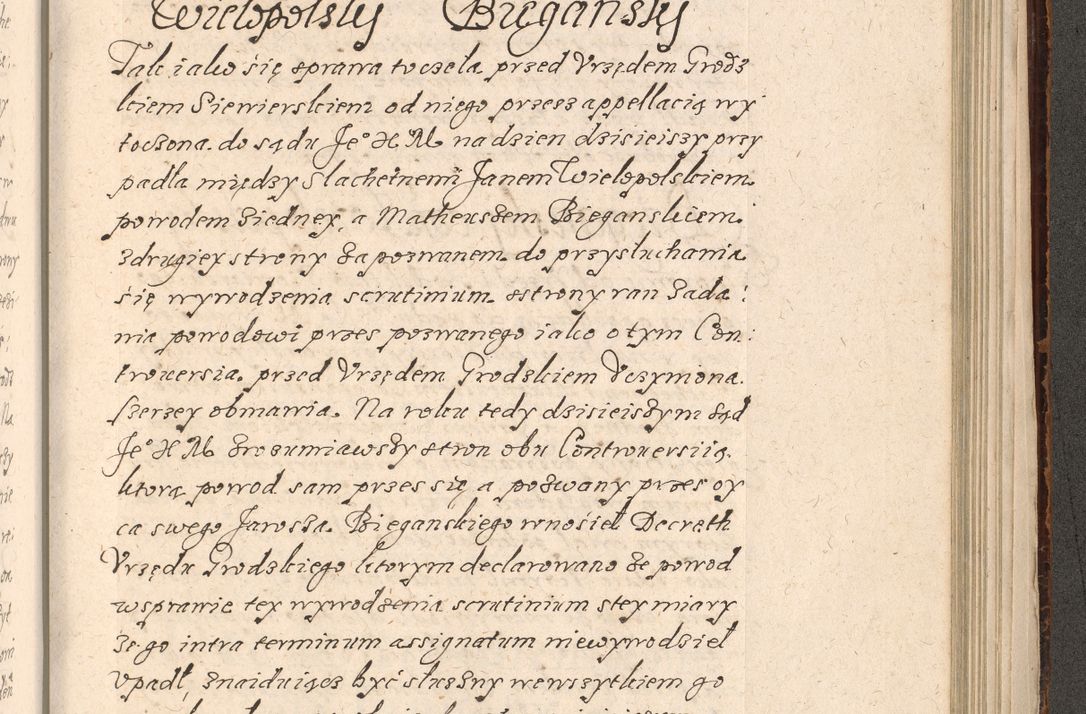 Wielopolsky Biegansky
Tak iako się sprawa toczela przed Vrzędem Grodz
kiem Siewierskiem od niego przesz appellacią wy
toczona do sądu Je° X M na dzien dzisieiszy przy
padła między Slachetnemi Janem Wielopolskiem
powodem ziedney, a Matheuszem Bieganskiem
zdrugiey strony zapozwanem do przysluchania
się wywodzenia scrutinium zstrony ran zada:
nia powodowi przes pozwanego iako o tym Con:
trouersia przed Vrzędem Grodzkiem Vczyniona
szerzey obmawia. Na roku tedy dzisieiszym sąd
Je° X M zrozumiawszy stron obu Controuersiią
ktorą powod sam przes się a pozwany przes oy
ca swego Jarosza Bieganskiego wnosieł Decreth
Vrzędu Grodzkiego ktorym declarowano ze powod
wsprawie tey wywodzenia scrutinium stey miary
ze go intra terminum assignatum niewywodzieł
Vpadł, znaiduiącz być słuszny wewszytkiem go